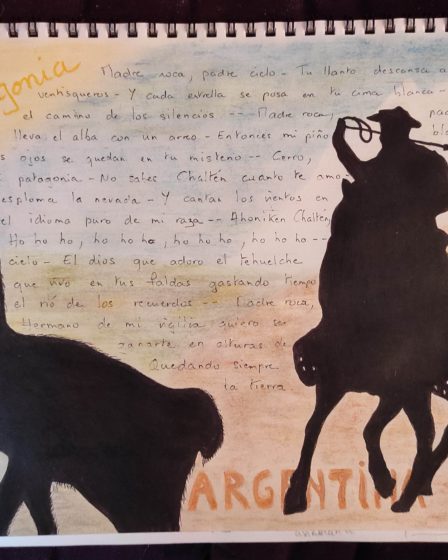 gonia
Madre roca, padre cielo - Tu llanto descansa a
ventisqueros - Y cada estrella se posa en tu cima blanca -
el camino de los silencios -- Madre roca, pad
lleva el alba con un arreo - Entonces mi piño
s ojos se quedan en tu misterio -- Cerro,
patagonia - No sabes Chaltén cuanto te amo
esploma la nevada - Y cantan los vientos en
el idioma puro de mi raza -- Ahoniken Chalten,
Ho ho ho, ho ho ho, ho ho ho, ho ho ho --
cielo - El dios que adoro el tehuelche
que vivo en tus faldas gastando tiempo
el río de los recuerdos -- Madre roca,
Hermano de mi vigilia quiero ser
ganarte en alturas de
Quedando siempre
la tierra.
ARGENTINA